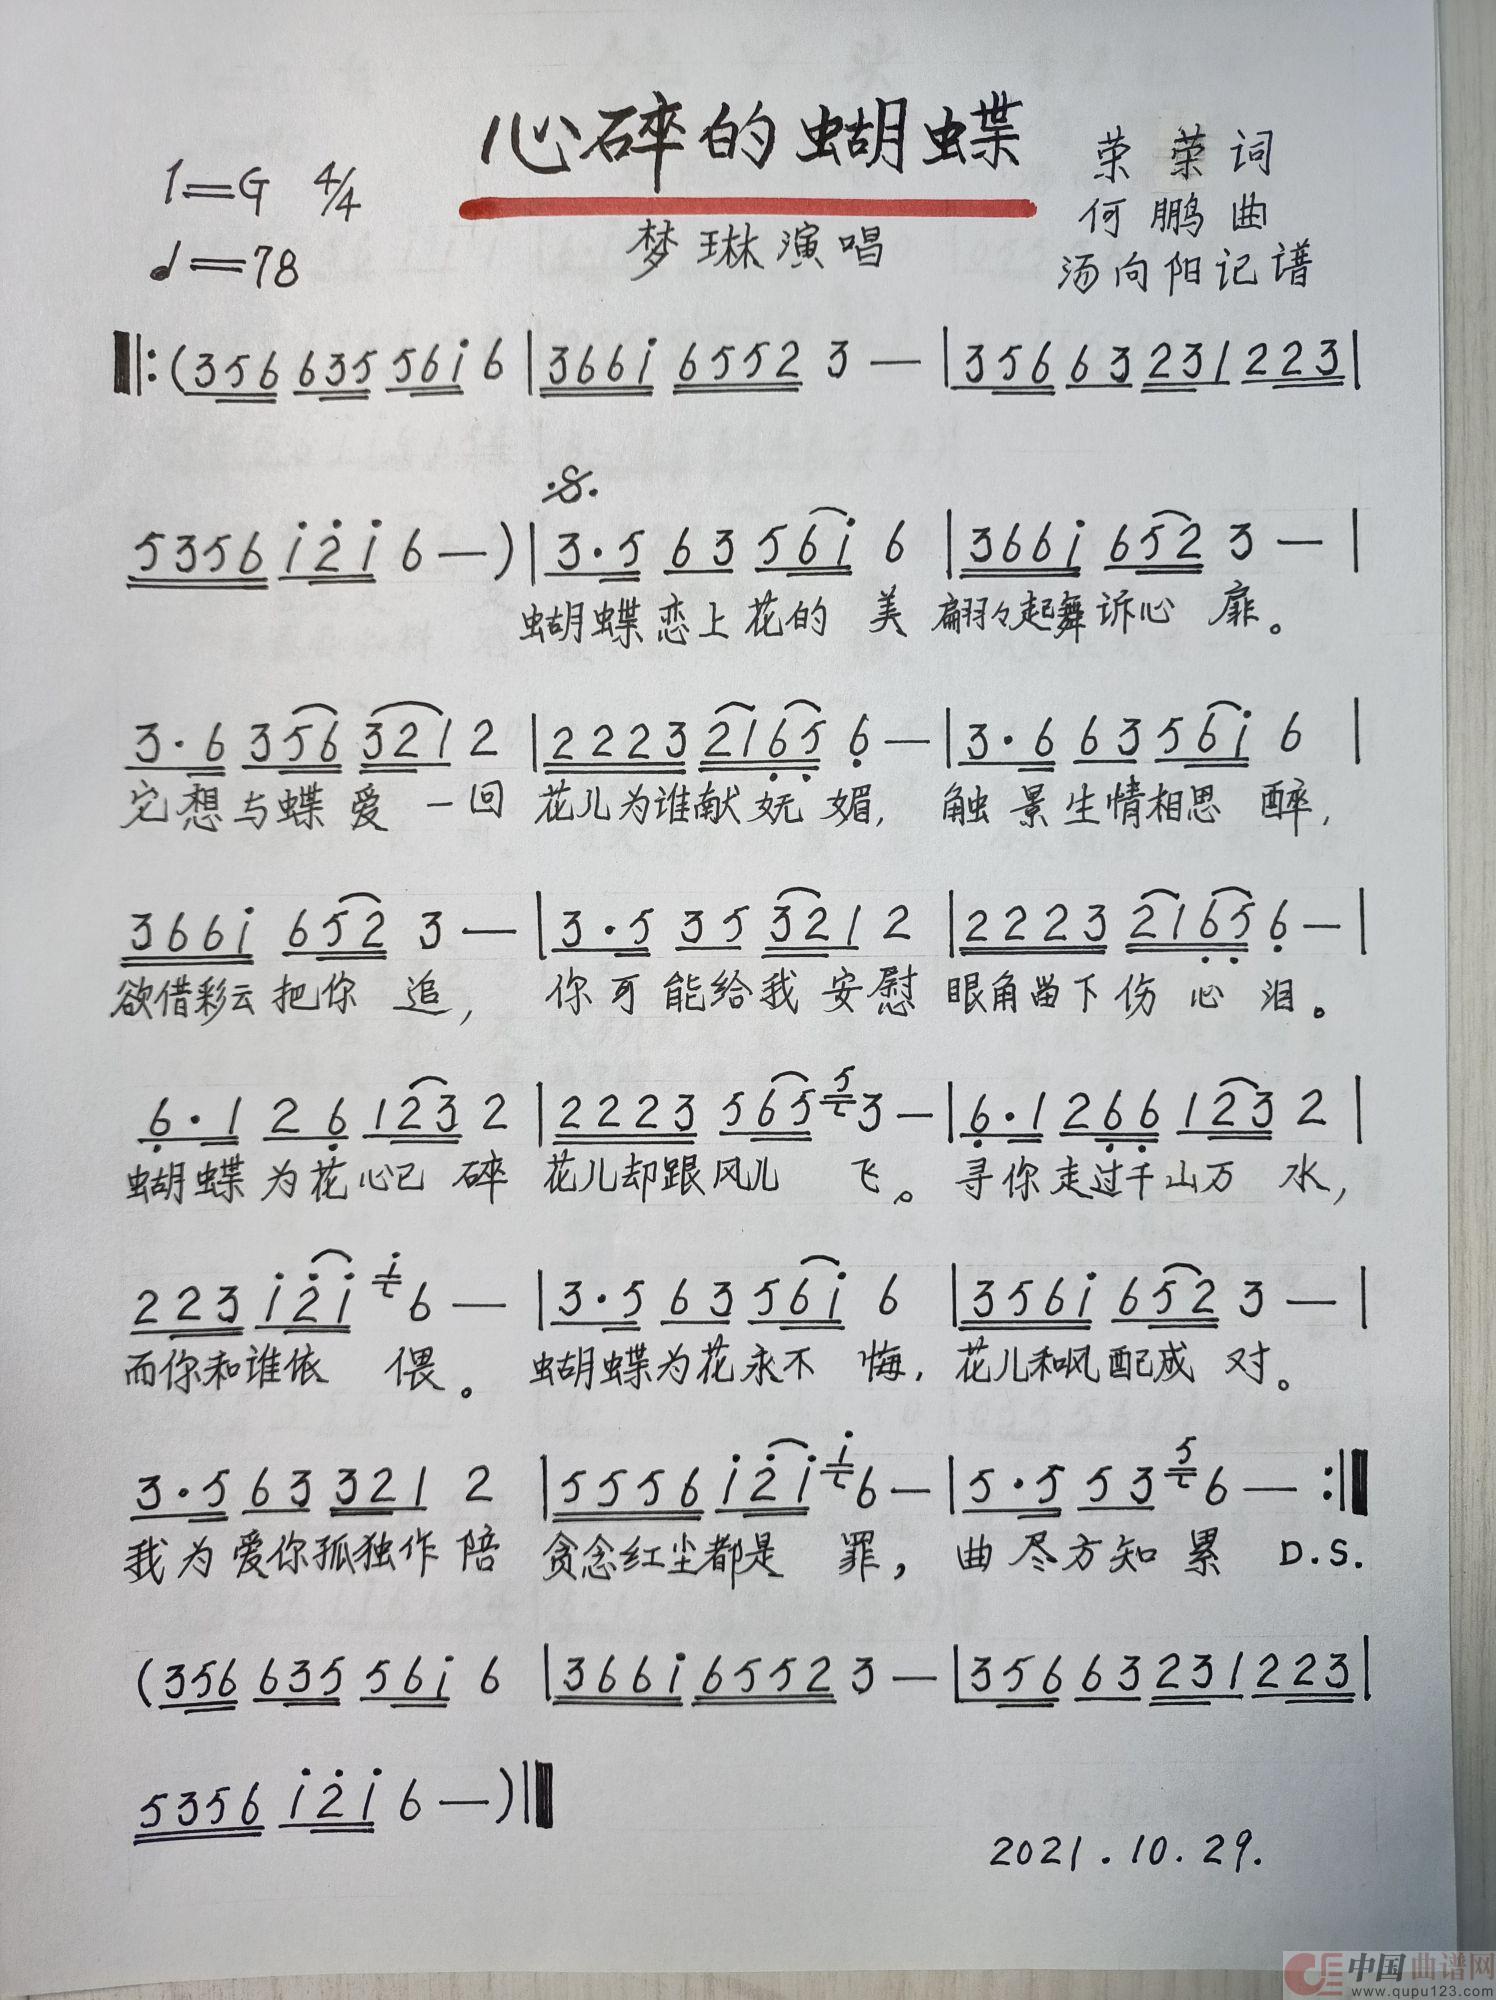 心碎的蝴蝶
1=G 4/4
荣荣词
何鹏曲
♩=78
梦琳演唱
汤向阳记谱
‖:(356 635 56i 6 | 366i 6552 3 — | 356 63 231 223 |
5356 i2i 6 — ) | 3·5 63 56i 6 | 366i 652 3 — |
蝴蝶恋上花的 美 翩翩々起舞诉心 扉。
3·6 356 321 2 | 2223 2165 6 — | 3·6 63 56i 6 |
它想与蝶爱 一回 花儿为谁献妩媚, 触景生情相思 醉,
366i 652 3 — | 3·5 35 321 2 | 2223 2165 6 — |
欲借彩云把你 追, 你可能给我安慰 眼角留下伤心 泪。
6·1 26 123 2 | 2223 565 5 3 — | 6·1 266 123 2 |
蝴蝶为花心已 碎 花儿却跟风儿 飞。 寻你走过千山万 水,
223 i2i i 6 — | 3·5 63 56i 6 | 356i 652 3 — |
而你和谁依 偎。 蝴蝶为花永不 悔, 花儿和风配成 对。
3·5 63 321 2 | 5556 i2i i 6 — | 5·5 53 5 6 — :‖
我为爱你孤独作 陪 贪念红尘都是 罪, 曲尽方知累 D.S.
(356 635 56i 6 | 366i 6552 3 — | 356 63 231 223 |
5356 i2i 6 — )‖
2021.10.29.
中国曲谱网
www.qupu123.com